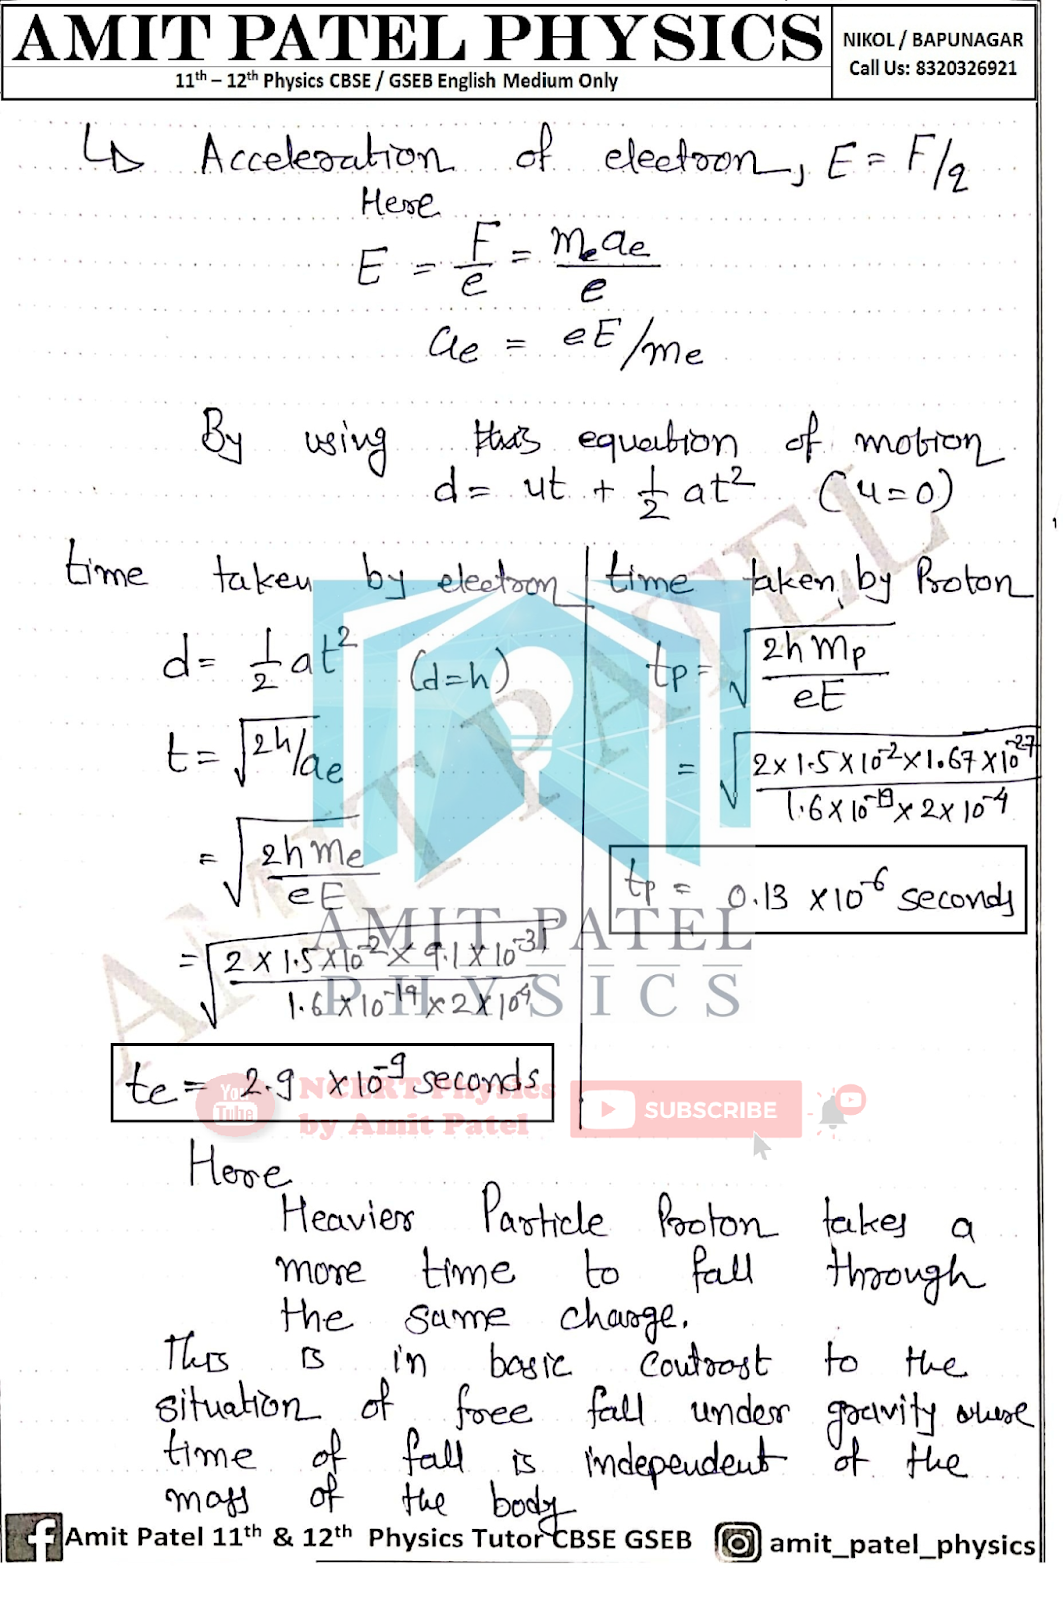 AMIT PATEL PHYSICS
11th – 12th Physics CBSE / GSEB English Medium Only
NIKOL / BAPUNAGAR
Call Us: 8320326921
↳ Acceleration of electron, E = F/q
Here
E = F/e = me ae/e
ae = eE/me
By using this equation of motion
d = ut + 1/2 at² (u=0)
time taken by electron
d = 1/2 at² (d=h)
t = √2h/ae
= √(2h me/eE)
= √(2 × 1.5 × 10⁻² × 9.1 × 10⁻³¹/1.6 × 10⁻¹⁹ × 2 × 10⁴)
te = 2.9 × 10⁻⁹ seconds
time taken by Proton
tp = √(2h mp/eE)
= √(2 × 1.5 × 10⁻² × 1.67 × 10⁻²⁷/1.6 × 10⁻¹⁹ × 2 × 10⁻⁴)
tp = 0.13 × 10⁻⁶ seconds
Here
Heavier Particle Proton takes a
more time to fall through
the same charge.
This is in basic contrast to the
situation of free fall under gravity where
time of fall is independent of the
mass of the body
AMIT PATEL
AMIT PATEL
PHYSICS
You Tube
NCERT Physics
by Amit Patel
SUBSCRIBE
Amit Patel 11th & 12th Physics Tutor CBSE GSEB
amit_patel_physics